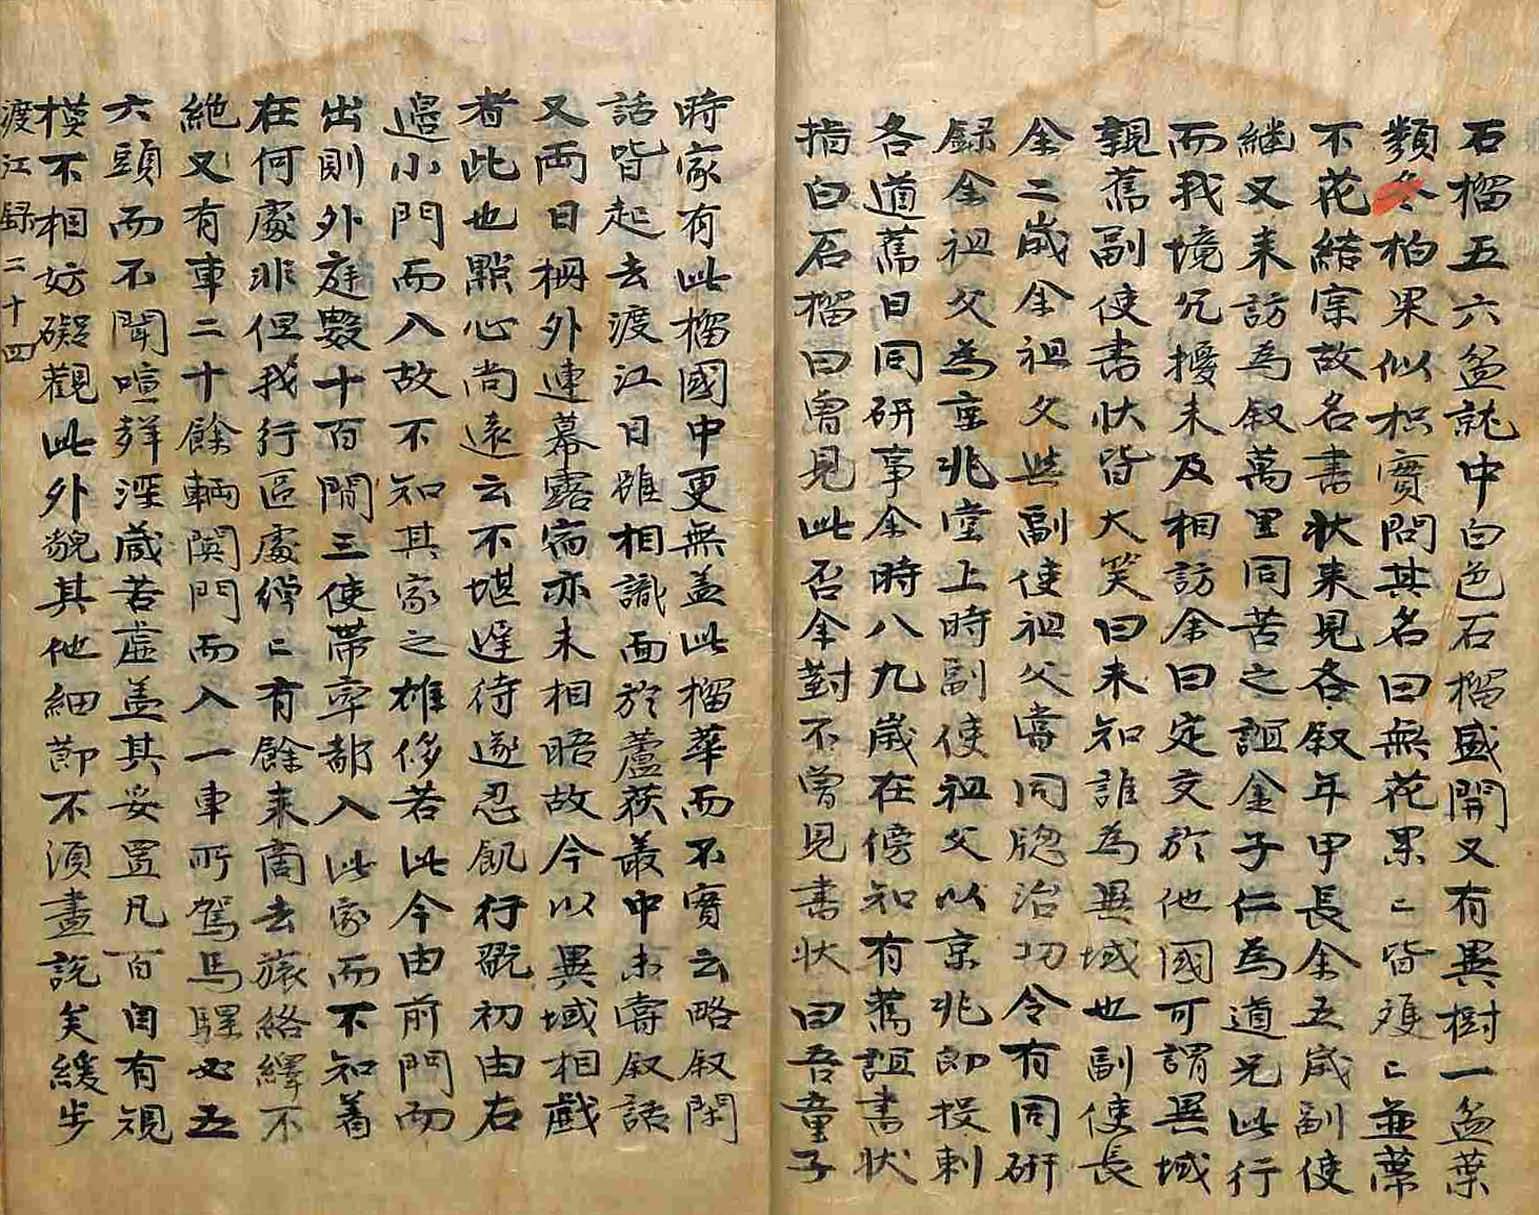 石榴五六盆就中白色石榴盛開又有異樹一盆葉
類冬柏果似枳實問其名曰無花果〻皆𩀱〻並蔕
不花結宗故名書狀来見各叙年甲長余五歲副使
継又来訪爲叙萬里同苦之誼金子仁爲道兄此行
而我境冗擾未及相訪余曰定交於他國可謂異域
親舊副使書狀皆大笑曰未知誰爲異域也副使長
余二歲余祖父與副使祖父嘗同牕治功令有同硏
録余祖父爲京兆堂上時副使祖父以京兆郎投刺
各道舊日同研事余時八九歲在傍知有舊誼書狀
指白石榴曰曾見此否余對不曾見書狀曰吾童子
時家有此榴國中更無盖此榴華而不實云略叙閑
話皆起去渡江日雖相識面於蘆荻叢中未嘗叙話
又両日柵外連幕露宿亦未相晤故今以異域相戯
者此也點心尚遠云不堪遅待遂忍飢行翫初由右
邊小門而入故不知其家之雄侈若此今由前門而
出則外庭數十百間三使帶率都入此家而不知着
在何處非但我行區處綽〻有餘来商去旅絡繹不
絶又有車二十餘輌闐門而入一車所駕馬騾必五
六頭而不聞喧聲深蔵若虛盖其妥置凡百自有規
模不相妨礙觀此外貌其他細節不湏盡說矣緩步
渡江録二十四